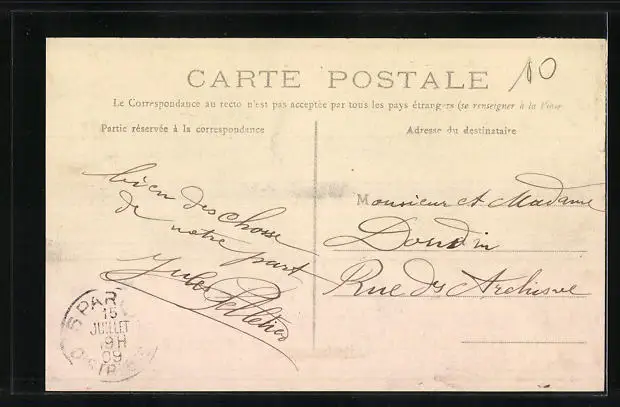 CARTE POSTALE
10
Le Correspondance au recto n'est pas acceptée par tous les pays étrangers (se renseigner à la Poste
Partie réservée à la correspondance
Adresse du destinataire
bien des chose
de notre part
Jules Pelletier
Monsieur et Madame
Dondin
Rue des Archisve
PAR
15
JUILLET
19H
09